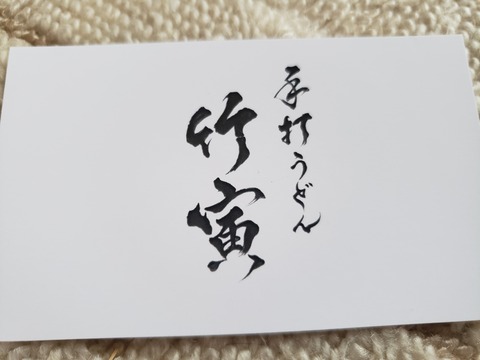 手打うどん
竹寅